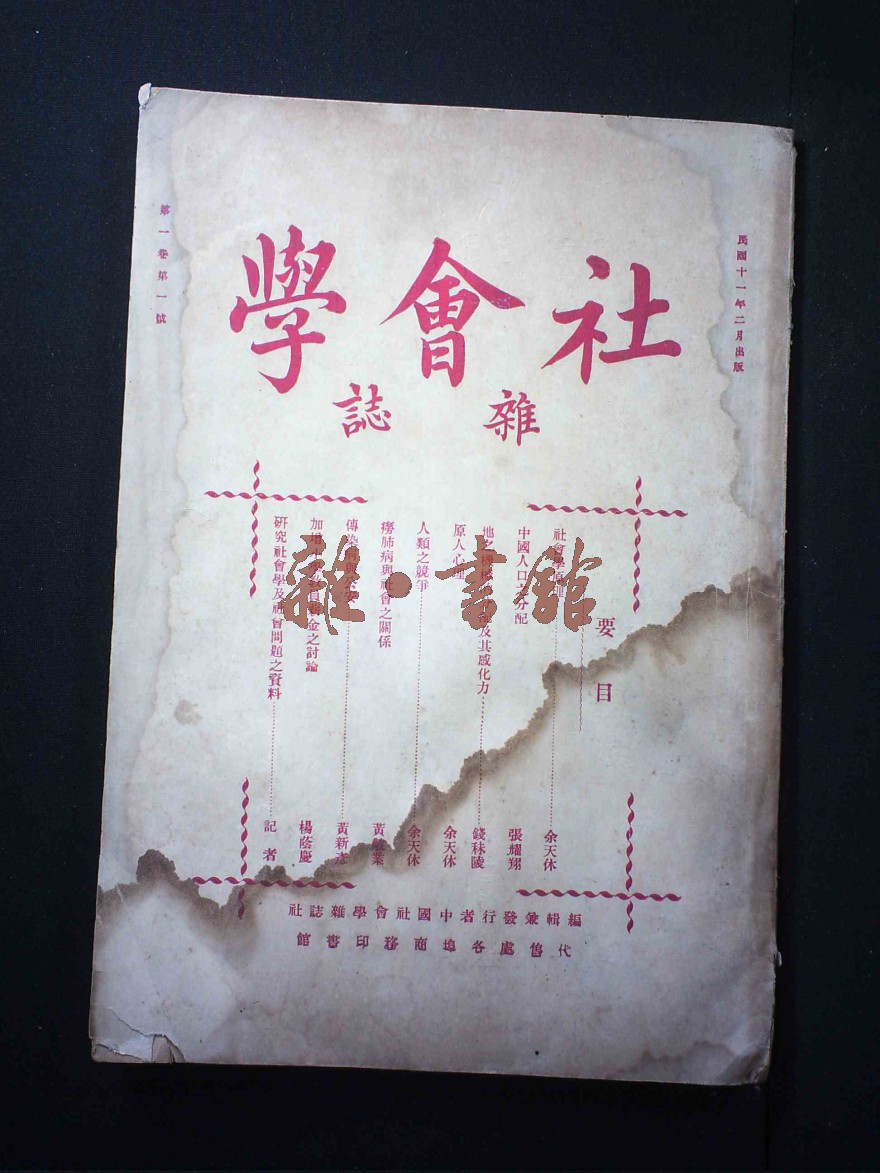 民國十一年二月出版
社會學
雜誌
第一卷第一號
要目
社會學 余天休
中國人口之分配 張耀翔
及其感化力 錢秣陵
原人心理 余天休
人類之競爭 余天休
癆肺病與社會之關係 黃業
傳染病與 黃新彥
加增 金之討論 楊蔭慶
研究社會學及社會問題之資料 記者
編輯兼發行者中國社會學雜誌社
代售處各埠商務印書館
雜·書館